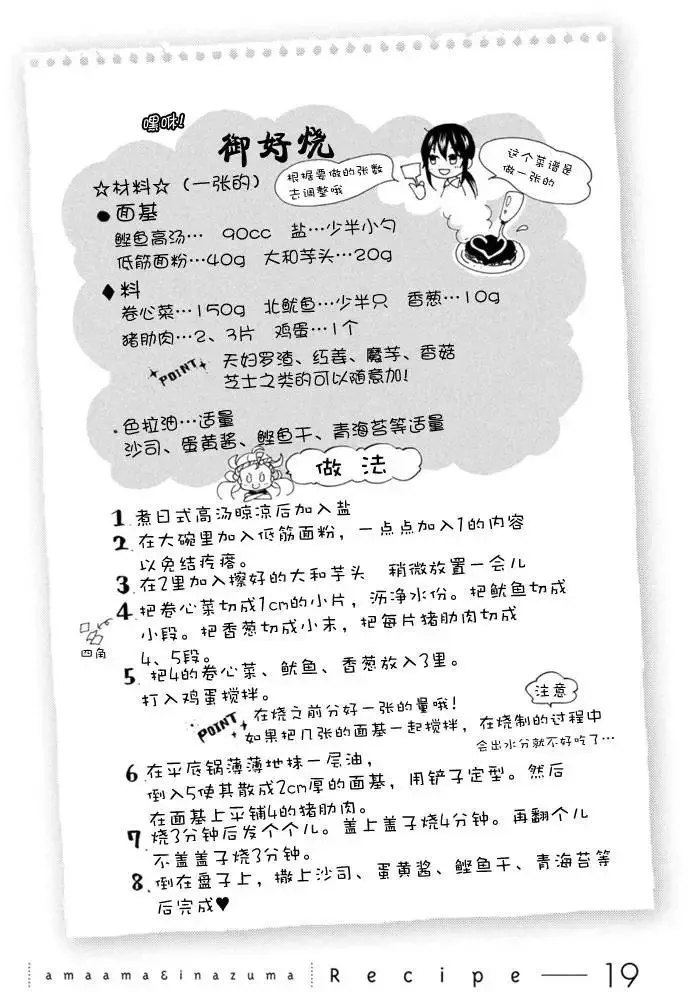 嘿咻!
御好烧
这个菜谱是
做一张的
根据要做的张数
去调整哦
☆材料☆（一张的）
●面基
鲣鱼高汤… 90cc 盐…少半小勺
低筋面粉…40g 大和芋头…20g
◆料
卷心菜…150g 北鱿鱼…少半只 香葱…10g
猪肋肉…2、3片 鸡蛋…1个
POINT
天妇罗渣、红姜、魔芋、香菇
芝士之类的可以随意加!
·色拉油…适量
沙司、蛋黄酱、鲣鱼干、青海苔等适量
做法
1 煮日式高汤晾凉后加入盐
2 在大碗里加入低筋面粉，一点点加入1的内容
以免结疙瘩。
3 在2里加入擦好的大和芋头 稍微放置一会儿
4 把卷心菜切成1cm的小片，沥净水份。把鱿鱼切成
小段。把香葱切成小末，把每片猪肋肉切成
4、5段。
四角
5 把4的卷心菜、鱿鱼、香葱放入3里。
打入鸡蛋搅拌。
POINT
在烧之前分好一张的量哦!
如果把几张的面基一起搅拌，在烧制的过程中
会出水分就不好吃了…
注意
6 在平底锅薄薄地抹一层油，
倒入5使其散成2cm厚的面基，用铲子定型。然后
在面基上平铺4的猪肋肉。
7 烧3分钟后发个个儿。盖上盖子烧4分钟。再翻个儿
不盖盖子烧3分钟。
8 倒在盘子上，撒上沙司、蛋黄酱、鲣鱼干、青海苔等
后完成♥
amaama&inazuma Recipe — 19